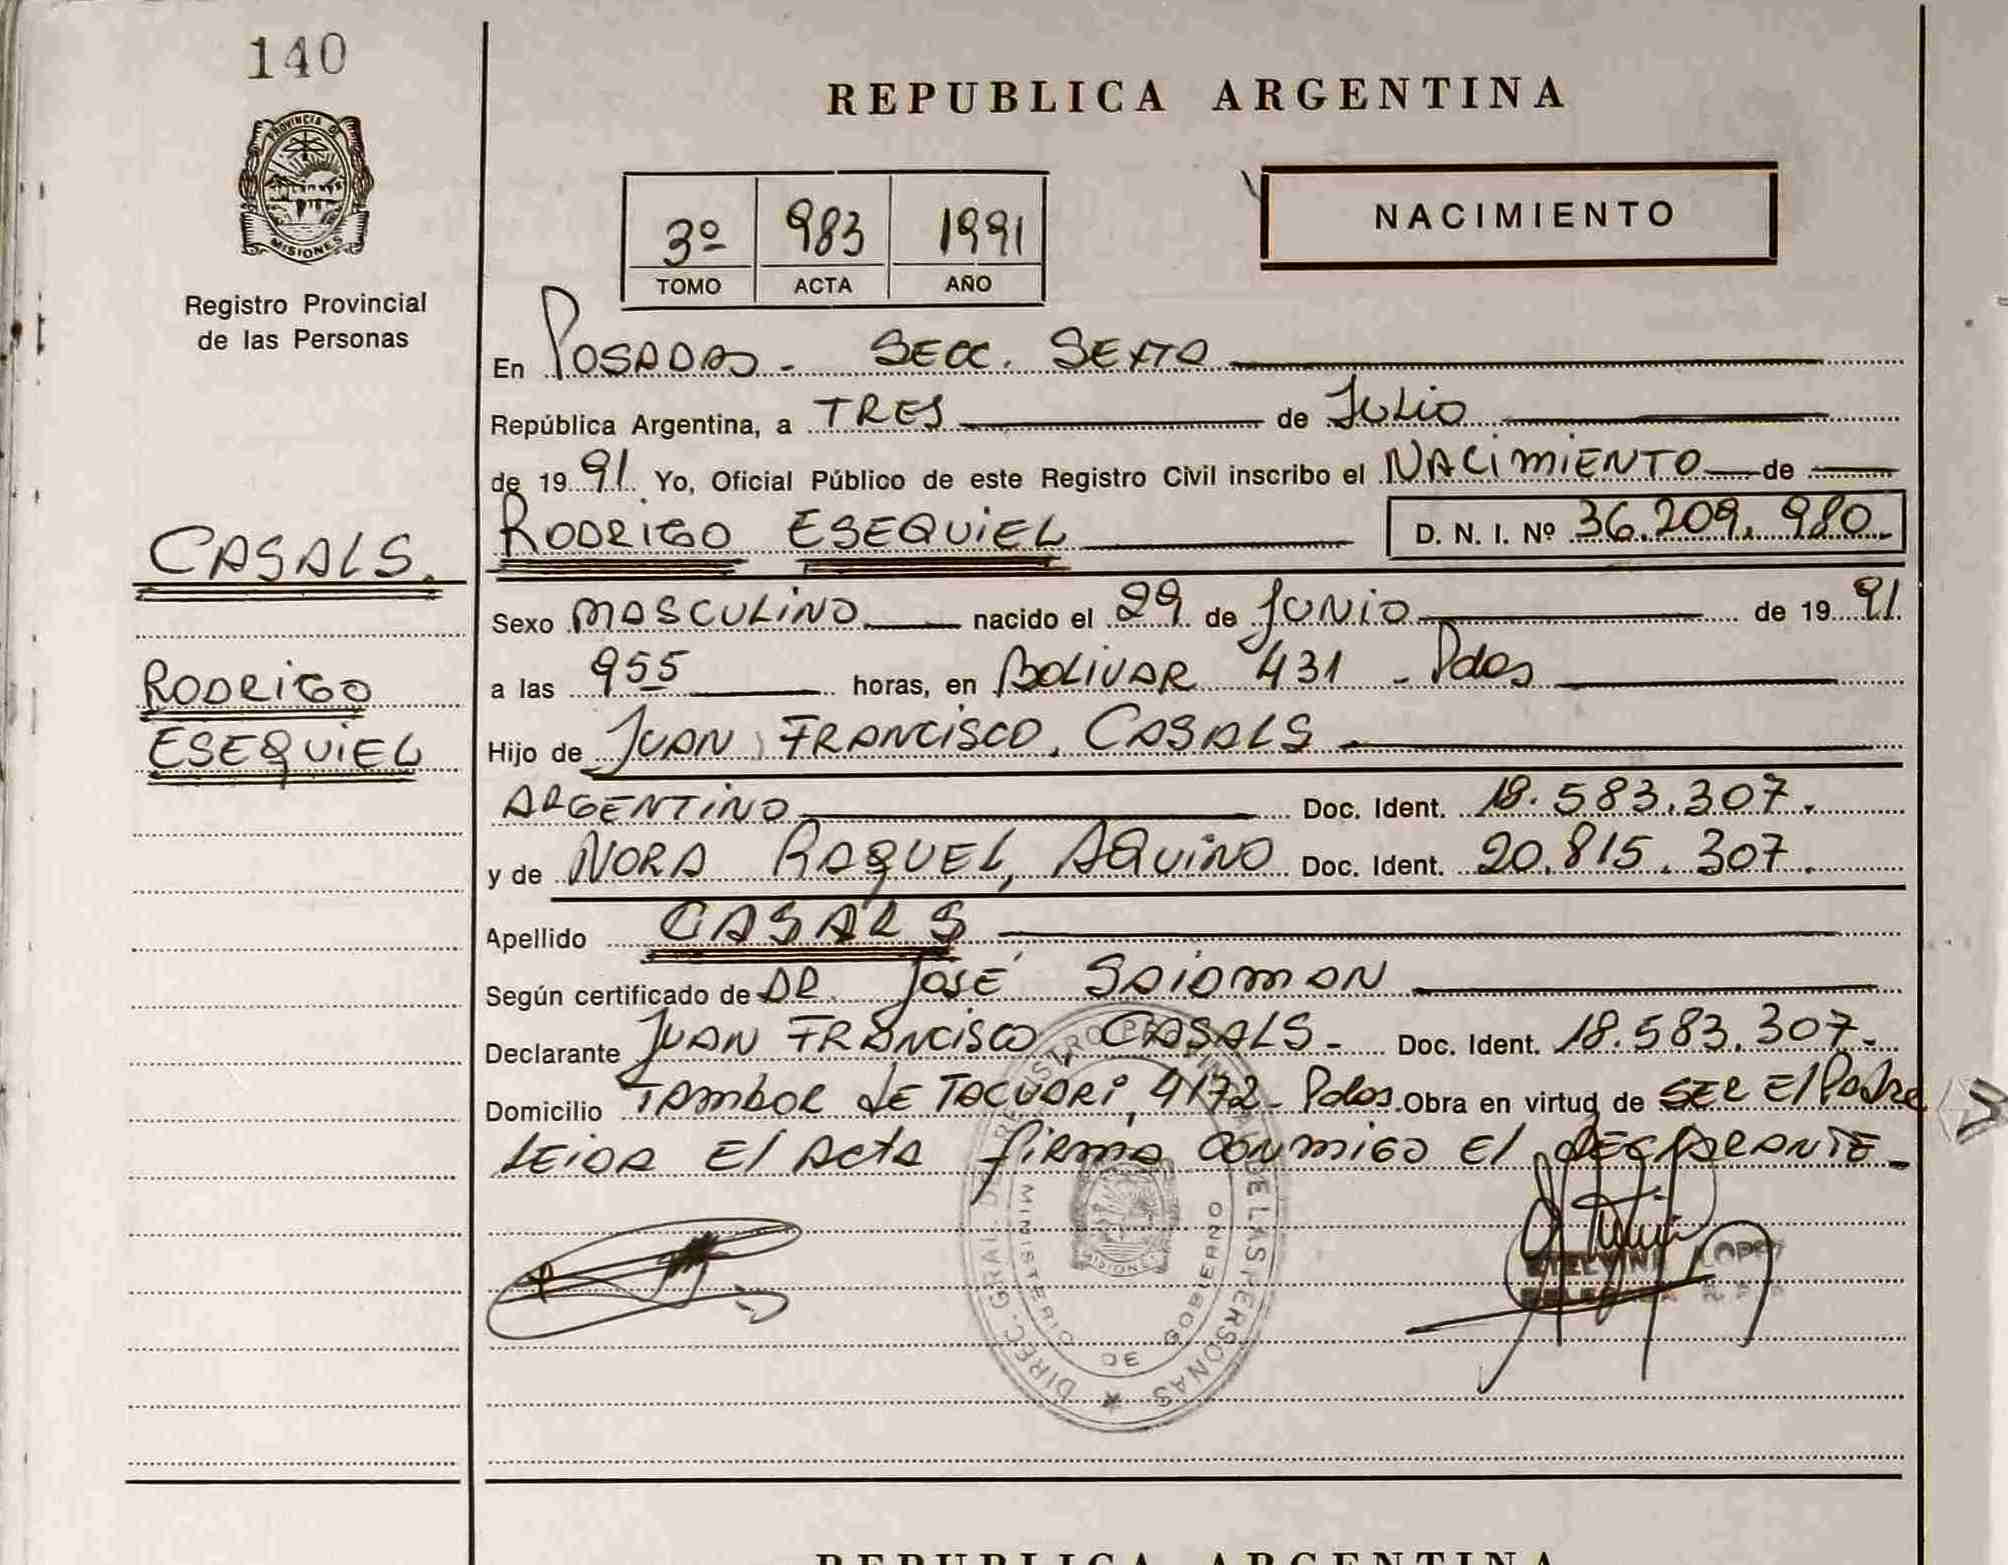 140
PROVINCIA DE
MISIONES
Registro Provincial
de las Personas
CASALS.
RODRIGO
ESEQUIEL
REPUBLICA ARGENTINA
3º 983 1991
TOMO ACTA AÑO
NACIMIENTO
En POSADAS - SECC. SEXTA
República Argentina, a TRES de JULIO
de 1991 Yo, Oficial Público de este Registro Civil inscribo el NACIMIENTO de
RODRIGO ESEQUIEL D. N. I. Nº 36.209.980.
Sexo MASCULINO nacido el 29 de JUNIO de 1991
a las 955 horas, en BOLIVAR 431 - Pdas
Hijo de JUAN FRANCISCO, CASALS
ARGENTINO Doc. Ident. 18.583.307.
y de NORA RAQUEL, AQUINO Doc. Ident. 20.815.307.
Apellido CASALS
Según certificado de DR JOSÉ
Declarante JUAN FRANCISCO CASALS - Doc. Ident. 18.583.307-
Domicilio TAMBOR DE TACUARI, 4172 - Pdas. Obra en virtud de SER El Padre
LEIDA El ActA firma CONMIGO El DECLARANTE -
LOPEZ
DIREC. GRAL. DEL REGISTRO PROVINCIAL DE LAS PERSONAS
MINISTERIO DE GOBIERNO
MISIONES
REPUBLICA ARGENTINA